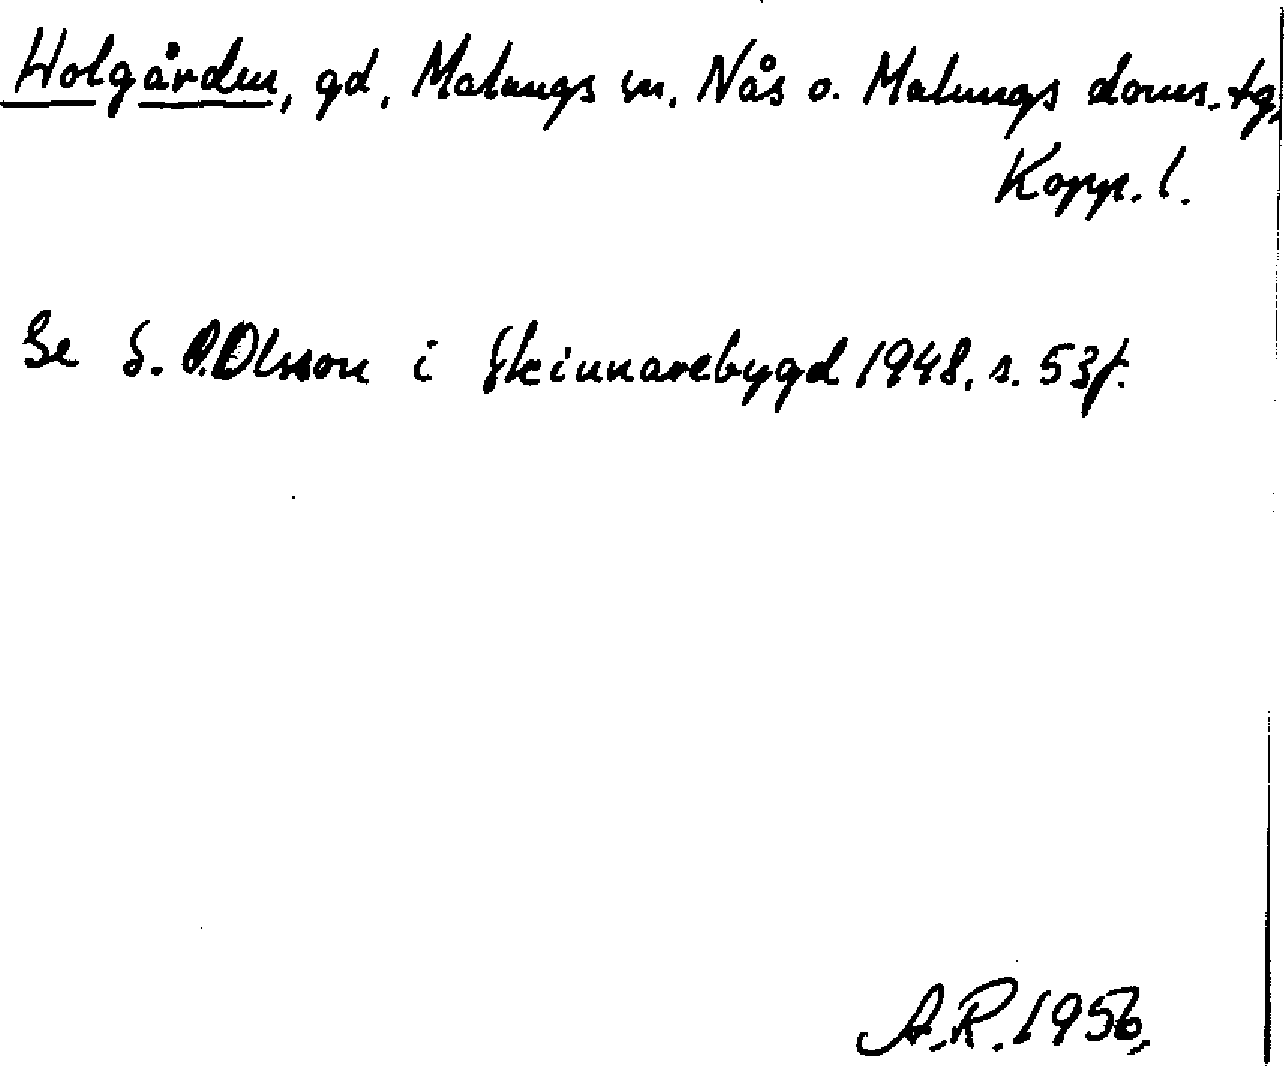 Holgården, gd, Malungs sn, Nås o. Malungs doms.tg,
Kopp. l.
Se S. P. Olsson i Skinnarebygd 1948, s. 53f.
A.R. 1956.